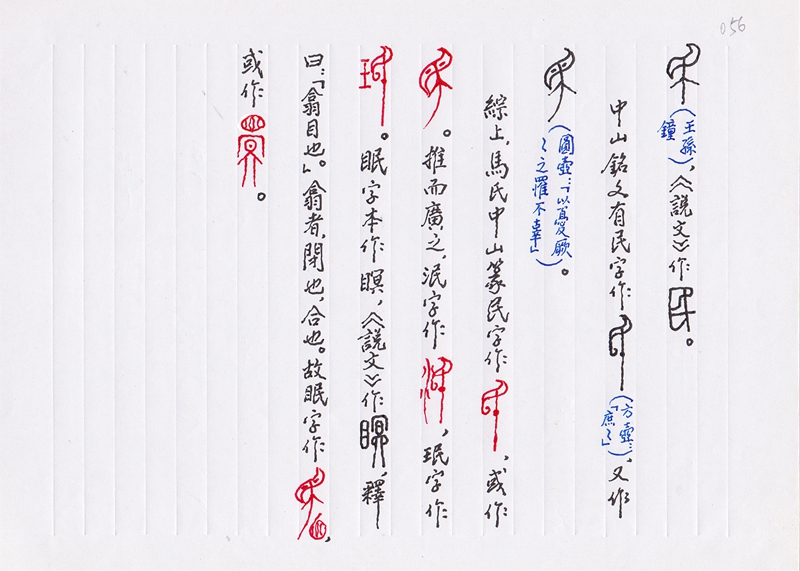 056
(王孫鐘),《說文》作。
中山銘文有民字作(方壺:「庶〻」),又作
(圓壺:「以憂厥〻之罹不辜」)。
綜上,馬氏中山篆民字作,或作
。推而廣之,泯字作,珉字作
。眠字本作瞑,《說文》作,釋
曰:「翕目也。」翕者,閉也,合也。故眠字作,
或作。